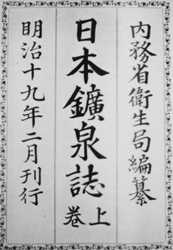 內務省衞生局編纂
日本鑛泉誌 上卷
明治十九年二月刊行